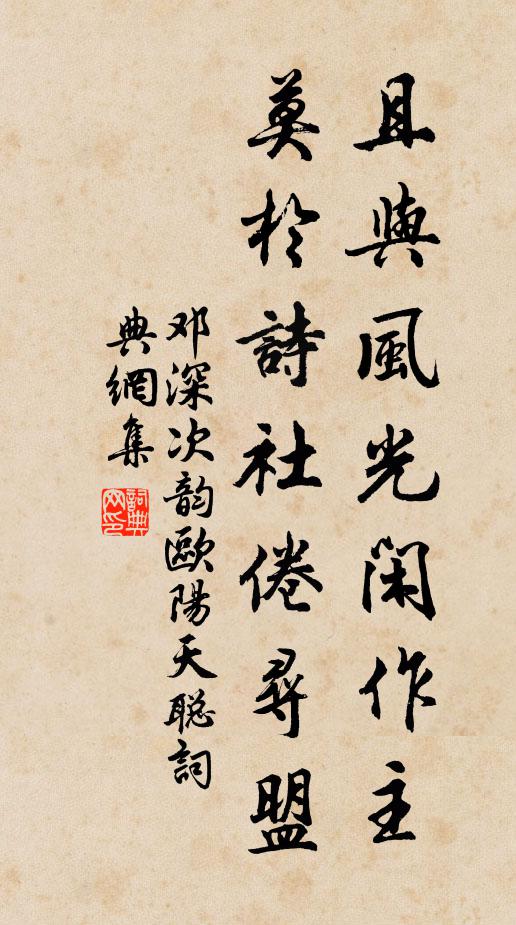 且與風光閑作主
莫於詩社倦尋盟
邓深次韵歐陽天聡詞
典網集
詞典
网印